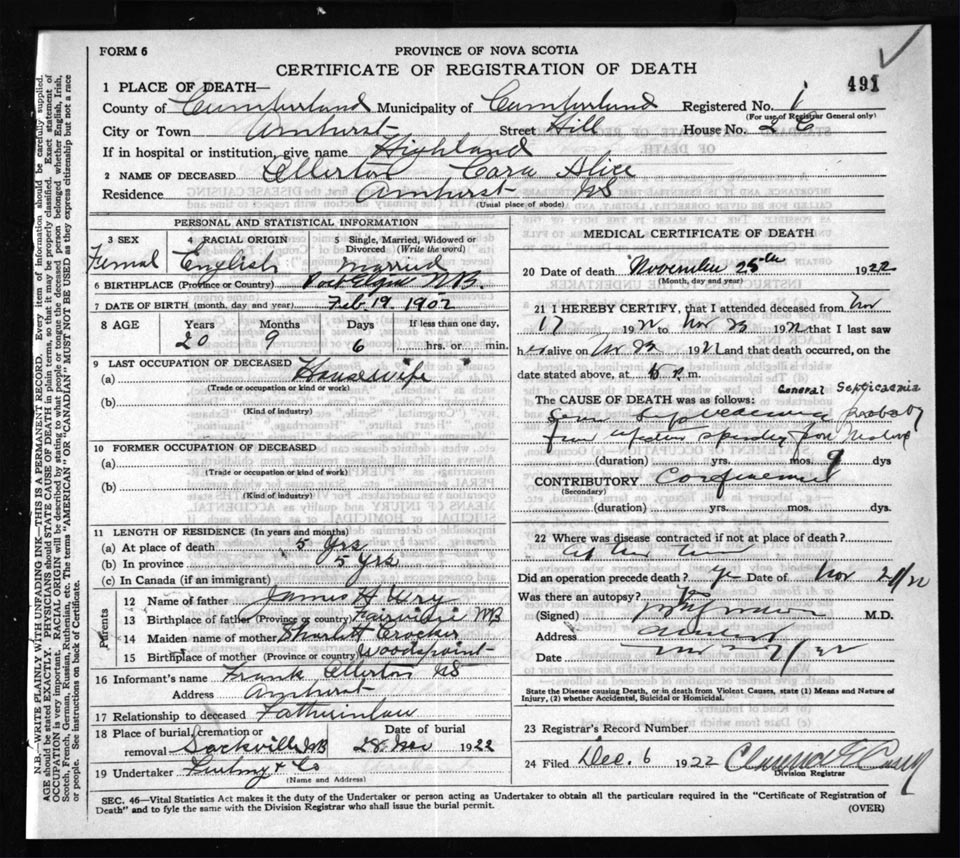 FORM 6
PROVINCE OF NOVA SCOTIA
CERTIFICATE OF REGISTRATION OF DEATH
491
1 PLACE OF DEATH—
County of Cumberland Municipality of Cumberland Registered No. 1
(For use of Registrar General only)
City or Town Amherst Street Hill House No. 26
If in hospital or institution, give name Highland
2 NAME OF DECEASED Ellerton Cara Alice
Residence Amherst NS
(Usual place of abode)
PERSONAL AND STATISTICAL INFORMATION
3 SEX 4 RACIAL ORIGIN 5 Single, Married, Widowed or Divorced (Write the word)
Femal English Married
6 BIRTHPLACE (Province or Country) Port Elgin N.B.
7 DATE OF BIRTH (month, day and year) Feb 19, 1902
8 AGE Years Months Days If less than one day,
20 9 6 hrs. or min.
9 LAST OCCUPATION OF DECEASED
(a) Housewife
(Trade or occupation or kind of work)
(b)
(Kind of industry)
10 FORMER OCCUPATION OF DECEASED
(a)
(Trade or occupation or kind of work)
(b)
(Kind of industry)
11 LENGTH OF RESIDENCE (In years and months)
(a) At place of death 5 Yrs
(b) In province 5 Yrs
(c) In Canada (if an immigrant)
Parents
12 Name of father James H Wry
13 Birthplace of father (Province or country) Fairview NB
14 Maiden name of mother Sharlett Crocker
15 Birthplace of mother (Province or country) Woodspoint
16 Informant's name Frank Ellerton NS
Address Amherst
17 Relationship to deceased Fatherinlaw
18 Place of burial, cremation or removal Sackville NB Date of burial 28 Nov 1922
19 Undertaker & Co
(Name and Address)
MEDICAL CERTIFICATE OF DEATH
20 Date of death November 25th 1922
(Month, day and year)
21 I HEREBY CERTIFY, that I attended deceased from Nov
17 192 to Nov 192 that I last saw
her alive on Nov 192 and that death occurred, on the
date stated above, at m.
General Septicaemia
The CAUSE OF DEATH was as follows:
Probably
from infection spreading from
(duration) yrs. mos. 9 dys
CONTRIBUTORY Confinement
(Secondary)
(duration) yrs. mos. dys
22 Where was disease contracted if not at place of death?
At her home
Did an operation precede death? Date of Nov
Was there an autopsy?
(Signed) M.D.
Address Amherst
Date
State the Disease causing Death, or in death from Violent Causes, state (1) Means and Nature of Injury, (2) whether Accidental, Suicidal or Homicidal.
23 Registrar's Record Number
24 Filed Dec. 6 1922
Division Registrar
SEC. 46—Vital Statistics Act makes it the duty of the Undertaker or person acting as Undertaker to obtain all the particulars required in the "Certificate of Registration of
Death" and to fyle the same with the Division Registrar who shall issue the burial permit. (OVER)
N.B.—WRITE PLAINLY WITH UNFADING INK—THIS IS A PERMANENT RECORD. Every item of information should be carefully supplied.
AGE should be stated EXACTLY. PHYSICIANS should STATE CAUSE OF DEATH in plain terms, so that it may be properly classified. Exact statement of
OCCUPATION is very important. RACIAL ORIGIN will be described by stating to what people or tongue the deceased person belonged whether English, Irish,
Scotch, French, German, Russian, Ruthenian, etc. The terms "AMERICAN" OR "CANADIAN" MUST NOT BE USED as they express citizenship but not a race
or people. See instructions on back of Certificate.